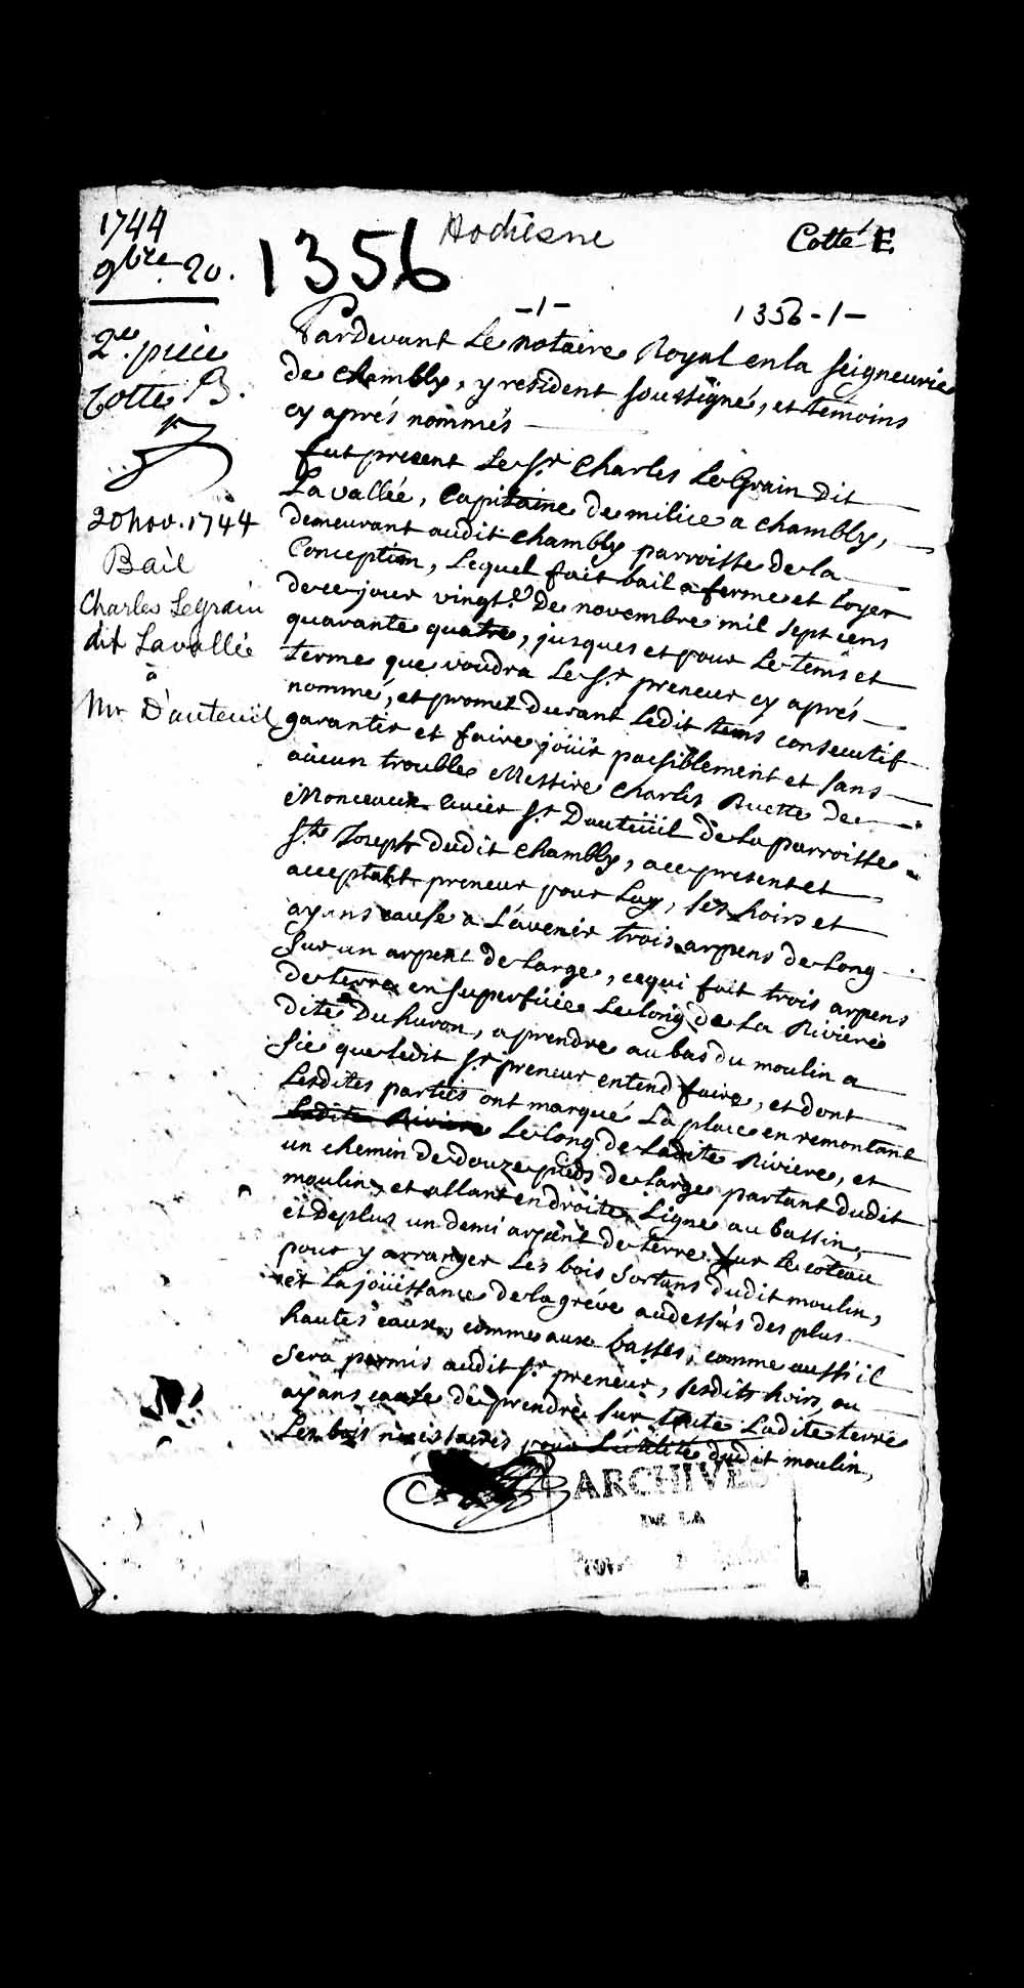 1744
9bre 20.
1356
Hodiesne
Cotté E
-1-
1356-1-
2e. piece
Cotte B.
20 nov. 1744
Bail
Charles Legrain
dit Lavallée
à
Mr D'auteuil
Pardevant Le notaire Royal en la seigneurie
de chambly, y resident soussigné, et temoins
cy aprés nommés
fut present Le Sr. Charles LeGrain dit
Lavallée, Capitaine de milice a chambly,
demeurant audit chambly parroisse de la
Conception, Lequel fait bail a ferme et loyer
de ce jour vingte. De novembre mil sept cens
quarante quatre, jusques et pour Le tems et
terme que voudra Le Sr. preneur cy aprés
nommé, et promet durant Ledit tems consecutif
garantir et faire joüir paisiblement et sans
aucun troubles Messire Charles Ruette de
Monceaux Sr Dauteüil de la parroisse
St. Joseph dudit chambly, a ce present et
acceptant preneur pour Luy, ses hoirs et
ayans cause a L'avenir trois arpens de long
Sur un arpent de large, ce qui fait trois arpens
de terre en superficie Le long de La Riviere
dite Du huron, a prendre au bas du moulin a
Sie que ledit Sr. preneur entend faire, et dont
Lesdites parties ont marqué La place en remontant
Ladite Riviere Le long de Ladite Riviere, et
un chemin de douze pieds de large partant dudit
moulin, et allant en droite Ligne au bassin,
et De plus un demi arpent de terre sur le coteau
pour y arranger Les bois sortans dudit moulin,
et La joüissance de la gréve audessus des plus
hautes eaux, comme aux basses, comme aussi il
Sera permis audit Sr. preneur, sesdits hoirs, ou
ayans cause de prendre sur toute Ladite terre
Les bois necessaires pour L'utilité dudit moulin,
ARCHIVES
DE LA